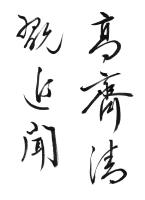 高齋清
翫近聞